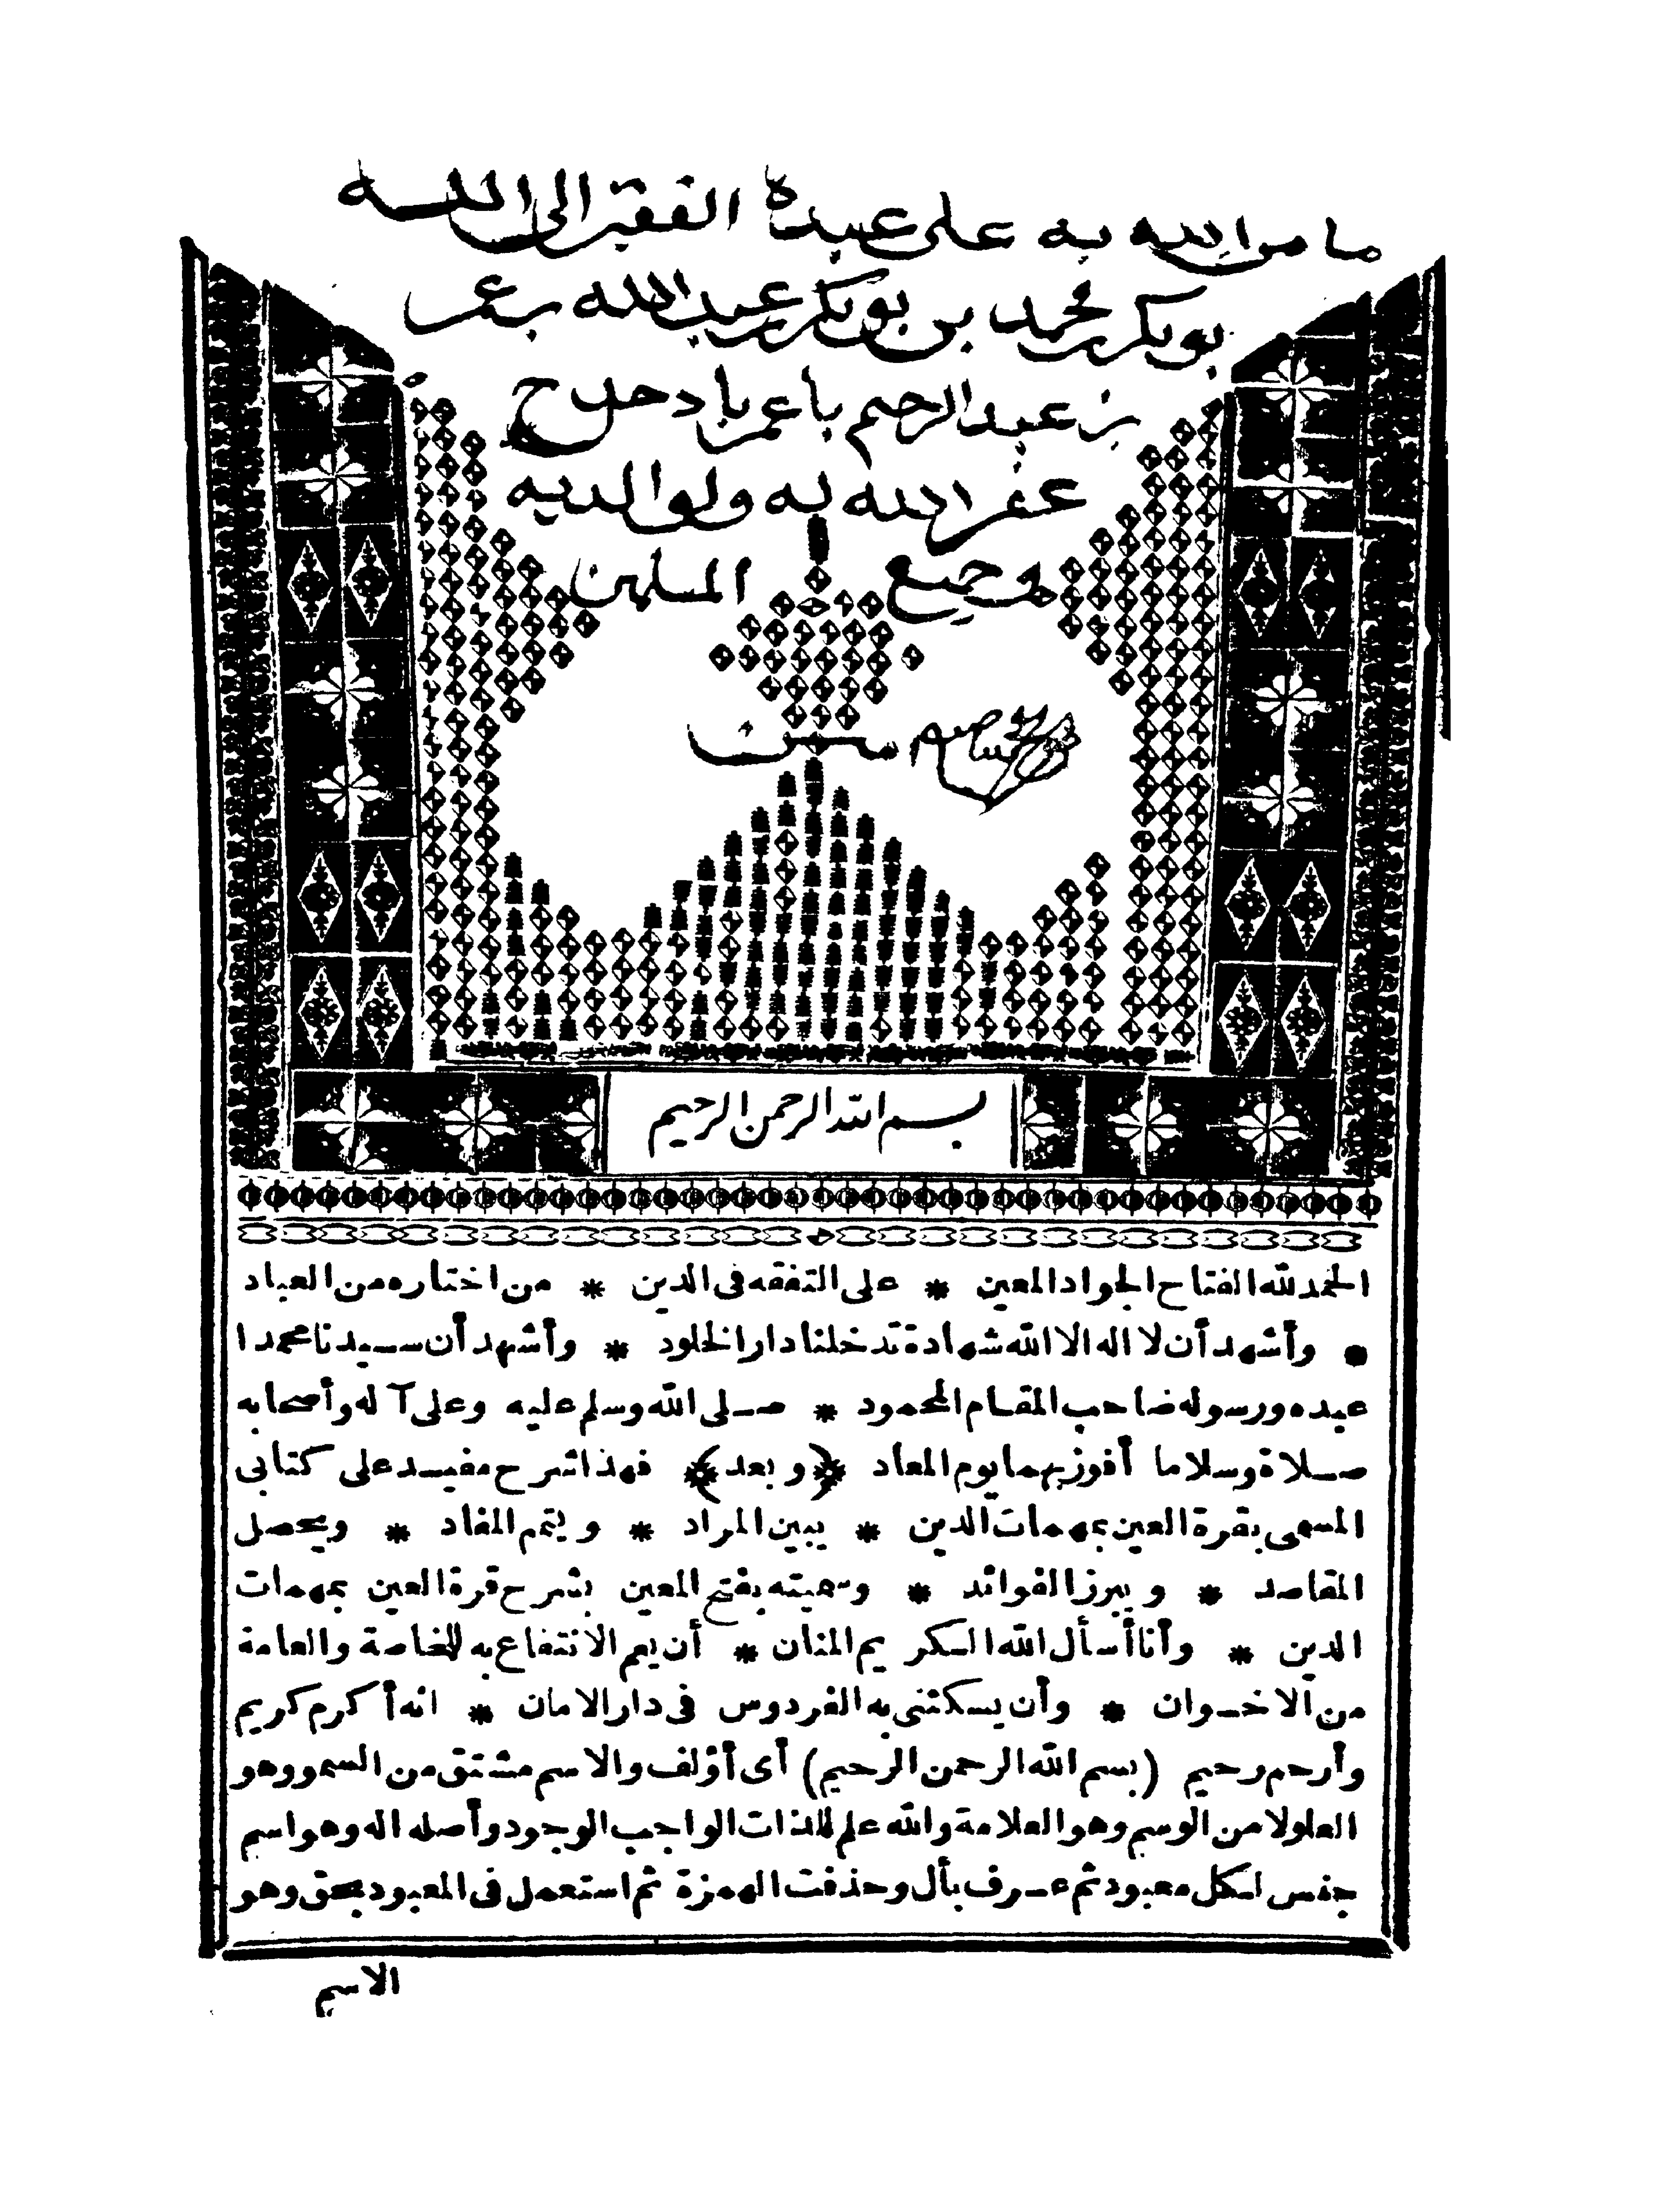 ما من الله به على عبده الفقير الى الله
بوبكر محمد بن بوبكر عبد الله بن عمر
بن عبد الرحيم باعمر با
غفر الله له ولوالديه
وجميع المسلمين
بسم الله الرحمن الرحيم
الحمد لله الفتاح الجواد المعين * على التفقه فى الدين * من اختاره من العباد
* وأشهد أن لا اله الا الله شهادة تدخلنا دار الخلود * وأشهد أن سيدنا محمدا
عبده ورسوله صاحب المقام المحمود * صلى الله وسلم عليه وعلى آله وأصحابه
صلاة وسلاما أفوز بهما يوم المعاد ﴿وبعد﴾ فهذا شرح مفيد على كتابى
المسمى بقرة العين بمهمات الدين * يبين المراد * ويتمم المفاد * ويحصل
المقاصد * ويبرز الفوائد * وسميته بفتح المعين بشرح قرة العين بمهمات
الدين * وأنا أسأل الله الكريم المنان * أن يعم الانتفاع به للخاصة والعامة
من الاخوان * وأن يسكننى به الفردوس فى دار الامان * انه أكرم كريم
وأرحم رحيم (بسم الله الرحمن الرحيم) أى أؤلف والاسم مشتق من السمو وهو
العلو لا من الوسم وهو العلامة والله علم للذات الواجب الوجود وأصله اله وهو اسم
جنس لكل معبود ثم عرف بأل وحذفت الهمزة ثم استعمل فى المعبود بحق وهو
الاسم